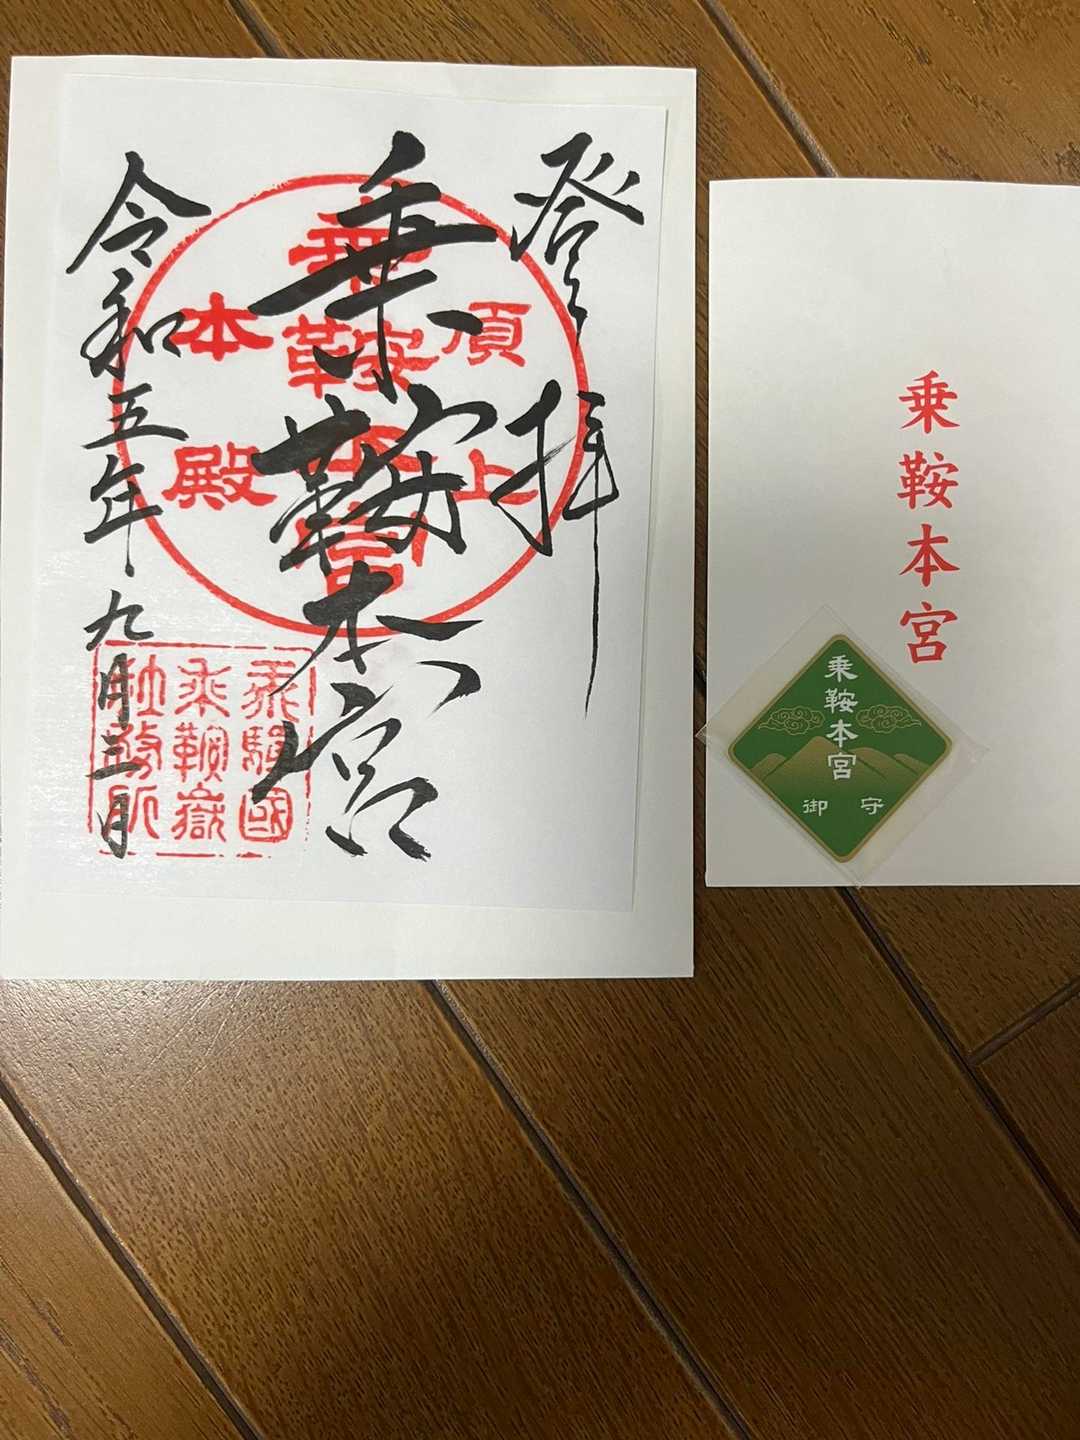 登拝
乗鞍本宮
令和五年九月三日
頂上
乗鞍本宮
本殿
乗鞍嶽
乗鞍本宮
乗鞍本宮
御守